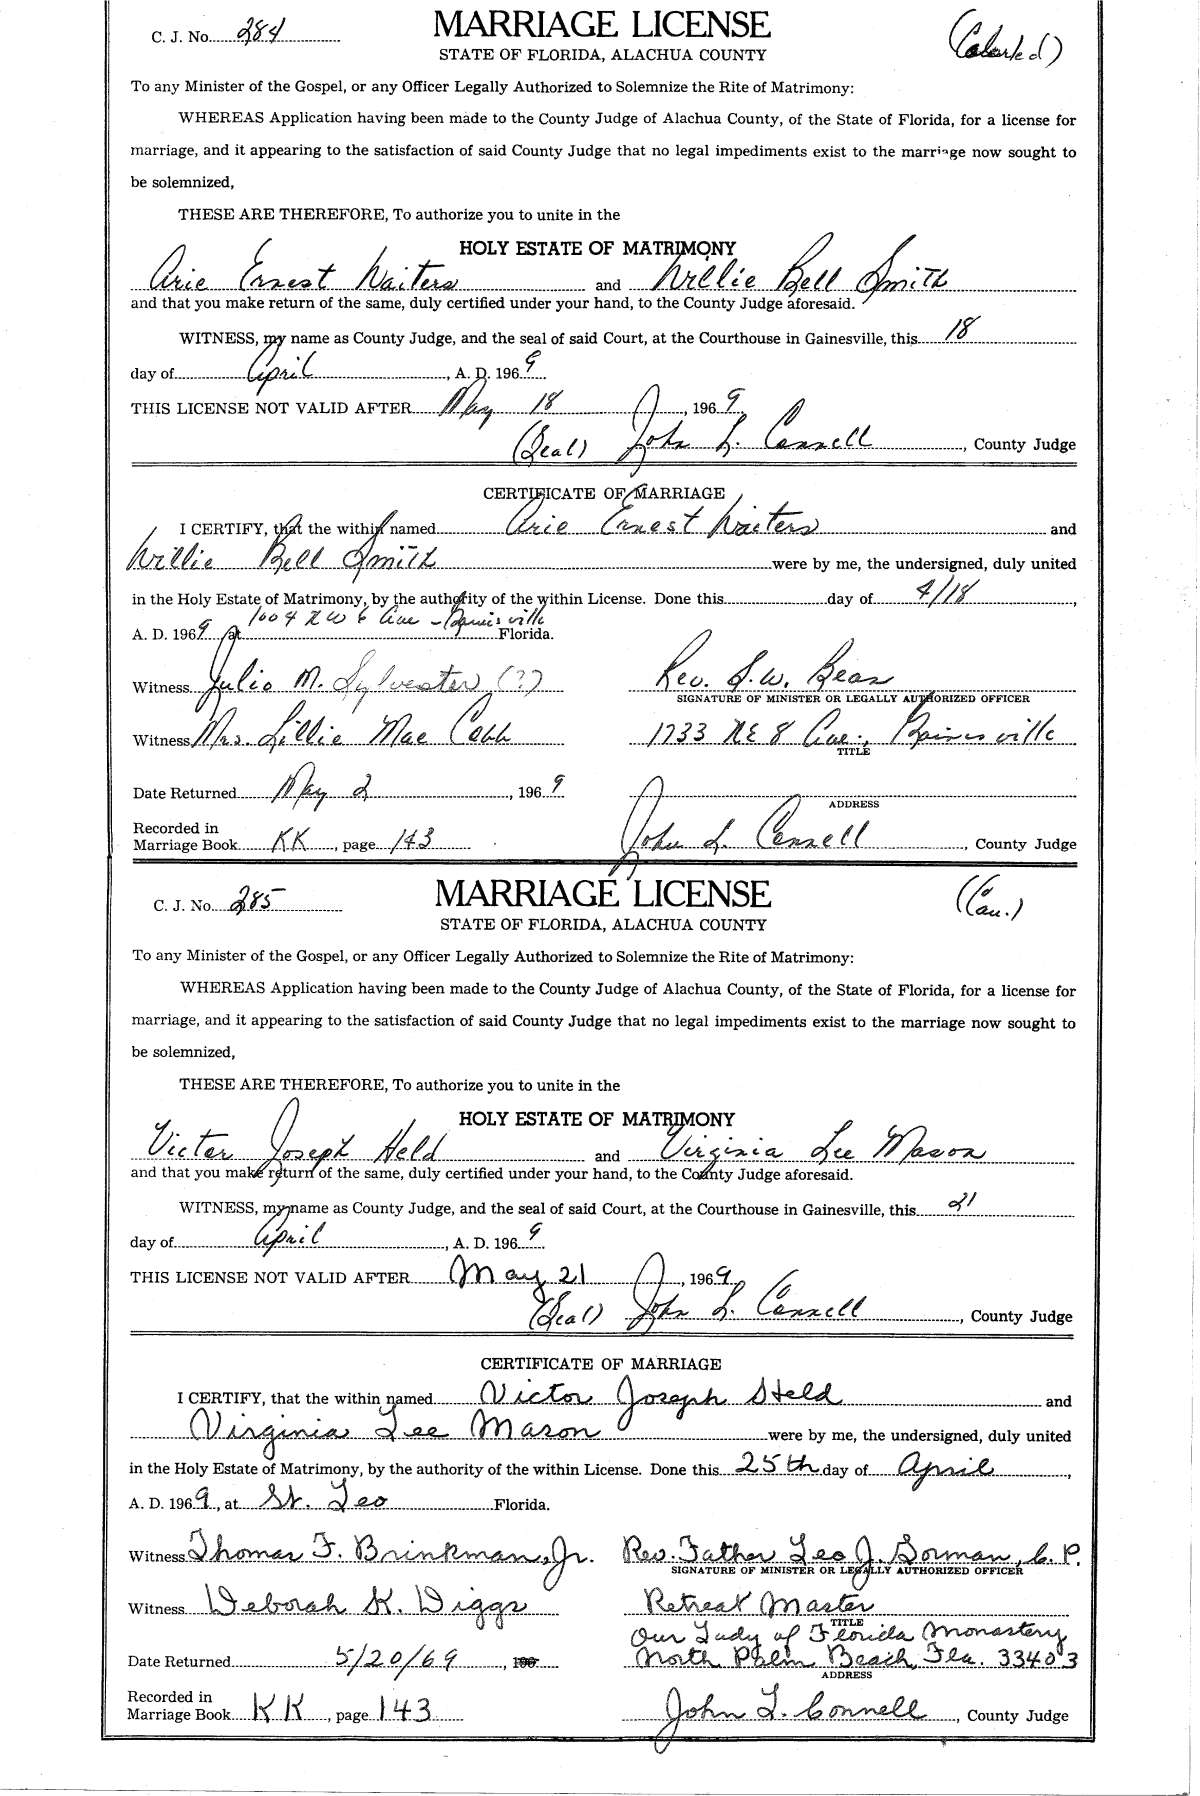 C. J. No. 284
MARRIAGE LICENSE
(Colored)
STATE OF FLORIDA, ALACHUA COUNTY
To any Minister of the Gospel, or any Officer Legally Authorized to Solemnize the Rite of Matrimony:
WHEREAS Application having been made to the County Judge of Alachua County, of the State of Florida, for a license for
marriage, and it appearing to the satisfaction of said County Judge that no legal impediments exist to the marriage now sought to
be solemnized,
THESE ARE THEREFORE, To authorize you to unite in the
HOLY ESTATE OF MATRIMONY
Arie Ernest Waiters and Willie Bell Smith
and that you make return of the same, duly certified under your hand, to the County Judge aforesaid.
WITNESS, my name as County Judge, and the seal of said Court, at the Courthouse in Gainesville, this 18
day of April, A. D. 1969
THIS LICENSE NOT VALID AFTER May 18, 1969
(Seal) John L. Connell, County Judge
CERTIFICATE OF MARRIAGE
I CERTIFY, that the within named Arie Ernest Waiters and
Willie Bell Smith were by me, the undersigned, duly united
in the Holy Estate of Matrimony, by the authority of the within License. Done this day of 4/18,
A. D. 1969 at 1004 N W 6 Ave - Gainesville Florida.
Witness Julio M. Sylvester (?) Rev. S. W. Bean
SIGNATURE OF MINISTER OR LEGALLY AUTHORIZED OFFICER
Witness Mrs. Lillie Mae Cobb 1733 NE 8 Ave., Gainesville
TITLE
Date Returned May 2, 1969
ADDRESS
Recorded in
Marriage Book KK, page 143 John L. Connell, County Judge
C. J. No. 285
MARRIAGE LICENSE
(Cau.)
STATE OF FLORIDA, ALACHUA COUNTY
To any Minister of the Gospel, or any Officer Legally Authorized to Solemnize the Rite of Matrimony:
WHEREAS Application having been made to the County Judge of Alachua County, of the State of Florida, for a license for
marriage, and it appearing to the satisfaction of said County Judge that no legal impediments exist to the marriage now sought to
be solemnized,
THESE ARE THEREFORE, To authorize you to unite in the
HOLY ESTATE OF MATRIMONY
Victor Joseph Held and Virginia Lee Mason
and that you make return of the same, duly certified under your hand, to the County Judge aforesaid.
WITNESS, my name as County Judge, and the seal of said Court, at the Courthouse in Gainesville, this 21
day of April, A. D. 1969
THIS LICENSE NOT VALID AFTER May 21, 1969
(Seal) John L. Connell, County Judge
CERTIFICATE OF MARRIAGE
I CERTIFY, that the within named Victor Joseph Held and
Virginia Lee Mason were by me, the undersigned, duly united
in the Holy Estate of Matrimony, by the authority of the within License. Done this 25th day of April,
A. D. 1969, at St. Leo Florida.
Witness Thomas F. Brinkman, Jr. Rev. Father Leo J. Gorman, C. P.
SIGNATURE OF MINISTER OR LEGALLY AUTHORIZED OFFICER
Witness Deborah K. Diggs Retreat Master
TITLE
Our Lady of Florida Monastery
Date Returned 5/20/69, 196 North Palm Beach, Fla. 33403
ADDRESS
Recorded in
Marriage Book KK, page 143 John L. Connell, County Judge